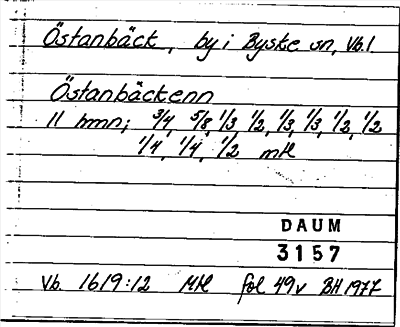 Östanbäck, by i Byske sn, Vb.l
Östanbäckenn
11 hmn; 3/4, 5/8, 1/3 1/2, 1/3, 1/3, 1/2, 1/2
1/4, 1/4, 1/2 mtl
DAUM
3157
Vb. 1619:12 Mtl fol 49v BH 1977